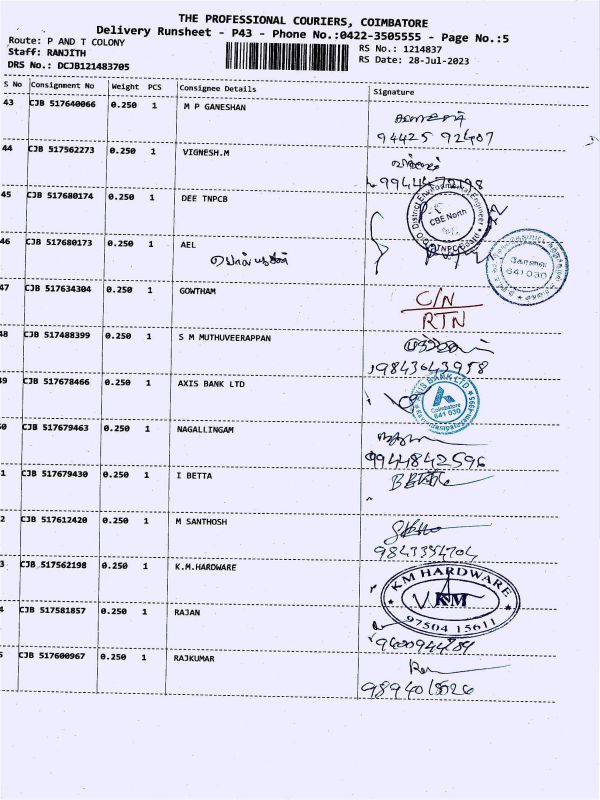 THE PROFESSIONAL COURIERS, COIMBATORE
Delivery Runsheet - P43 - Phone No.:0422-3505555 - Page No.:5
Route: P AND T COLONY
RS No.: 1214837
Staff: RANJITH
RS Date: 28-Jul-2023
DRS No.: DCJB121483705
S No Consignment No Weight PCS Consignee Details Signature
43 CJB 517640066 0.250 1 M P GANESHAN
94425 92407
44 CJB 517562273 0.250 1 VIGNESH.M
45 CJB 517680174 0.250 1 DEE TNPCB
District Environmental Engineer
CBE North
46 CJB 517680173 0.250 1 AEL
கோவை
641 030
47 CJB 517634304 0.250 1 GOWTHAM
C/N
RTN
48 CJB 517488399 0.250 1 S M MUTHUVEERAPPAN
9843643958
49 CJB 517678466 0.250 1 AXIS BANK LTD
AXIS BANK LTD
Coimbatore
641 030
50 CJB 517679463 0.250 1 NAGALLINGAM
9944842596
1 CJB 517679430 0.250 1 I BETTA
2 CJB 517612420 0.250 1 M SANTHOSH
9843354704
3 CJB 517562198 0.250 1 K.M.HARDWARE
KM HARDWARE
KM
97504 15611
4 CJB 517581857 0.250 1 RAJAN
5 CJB 517600967 0.250 1 RAJKUMAR